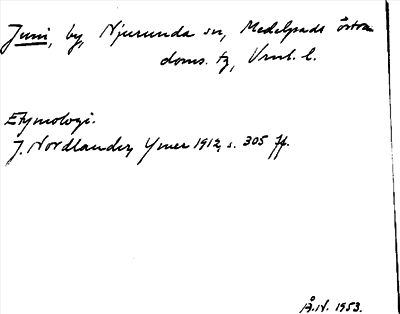 Juni, by, Njurunda sn, Medelpads östra
doms. tg, Vrnl. l.
Etymologi.
J. Nordlander, Ymer 1912, s. 305 ff.
Å.N. 1953.